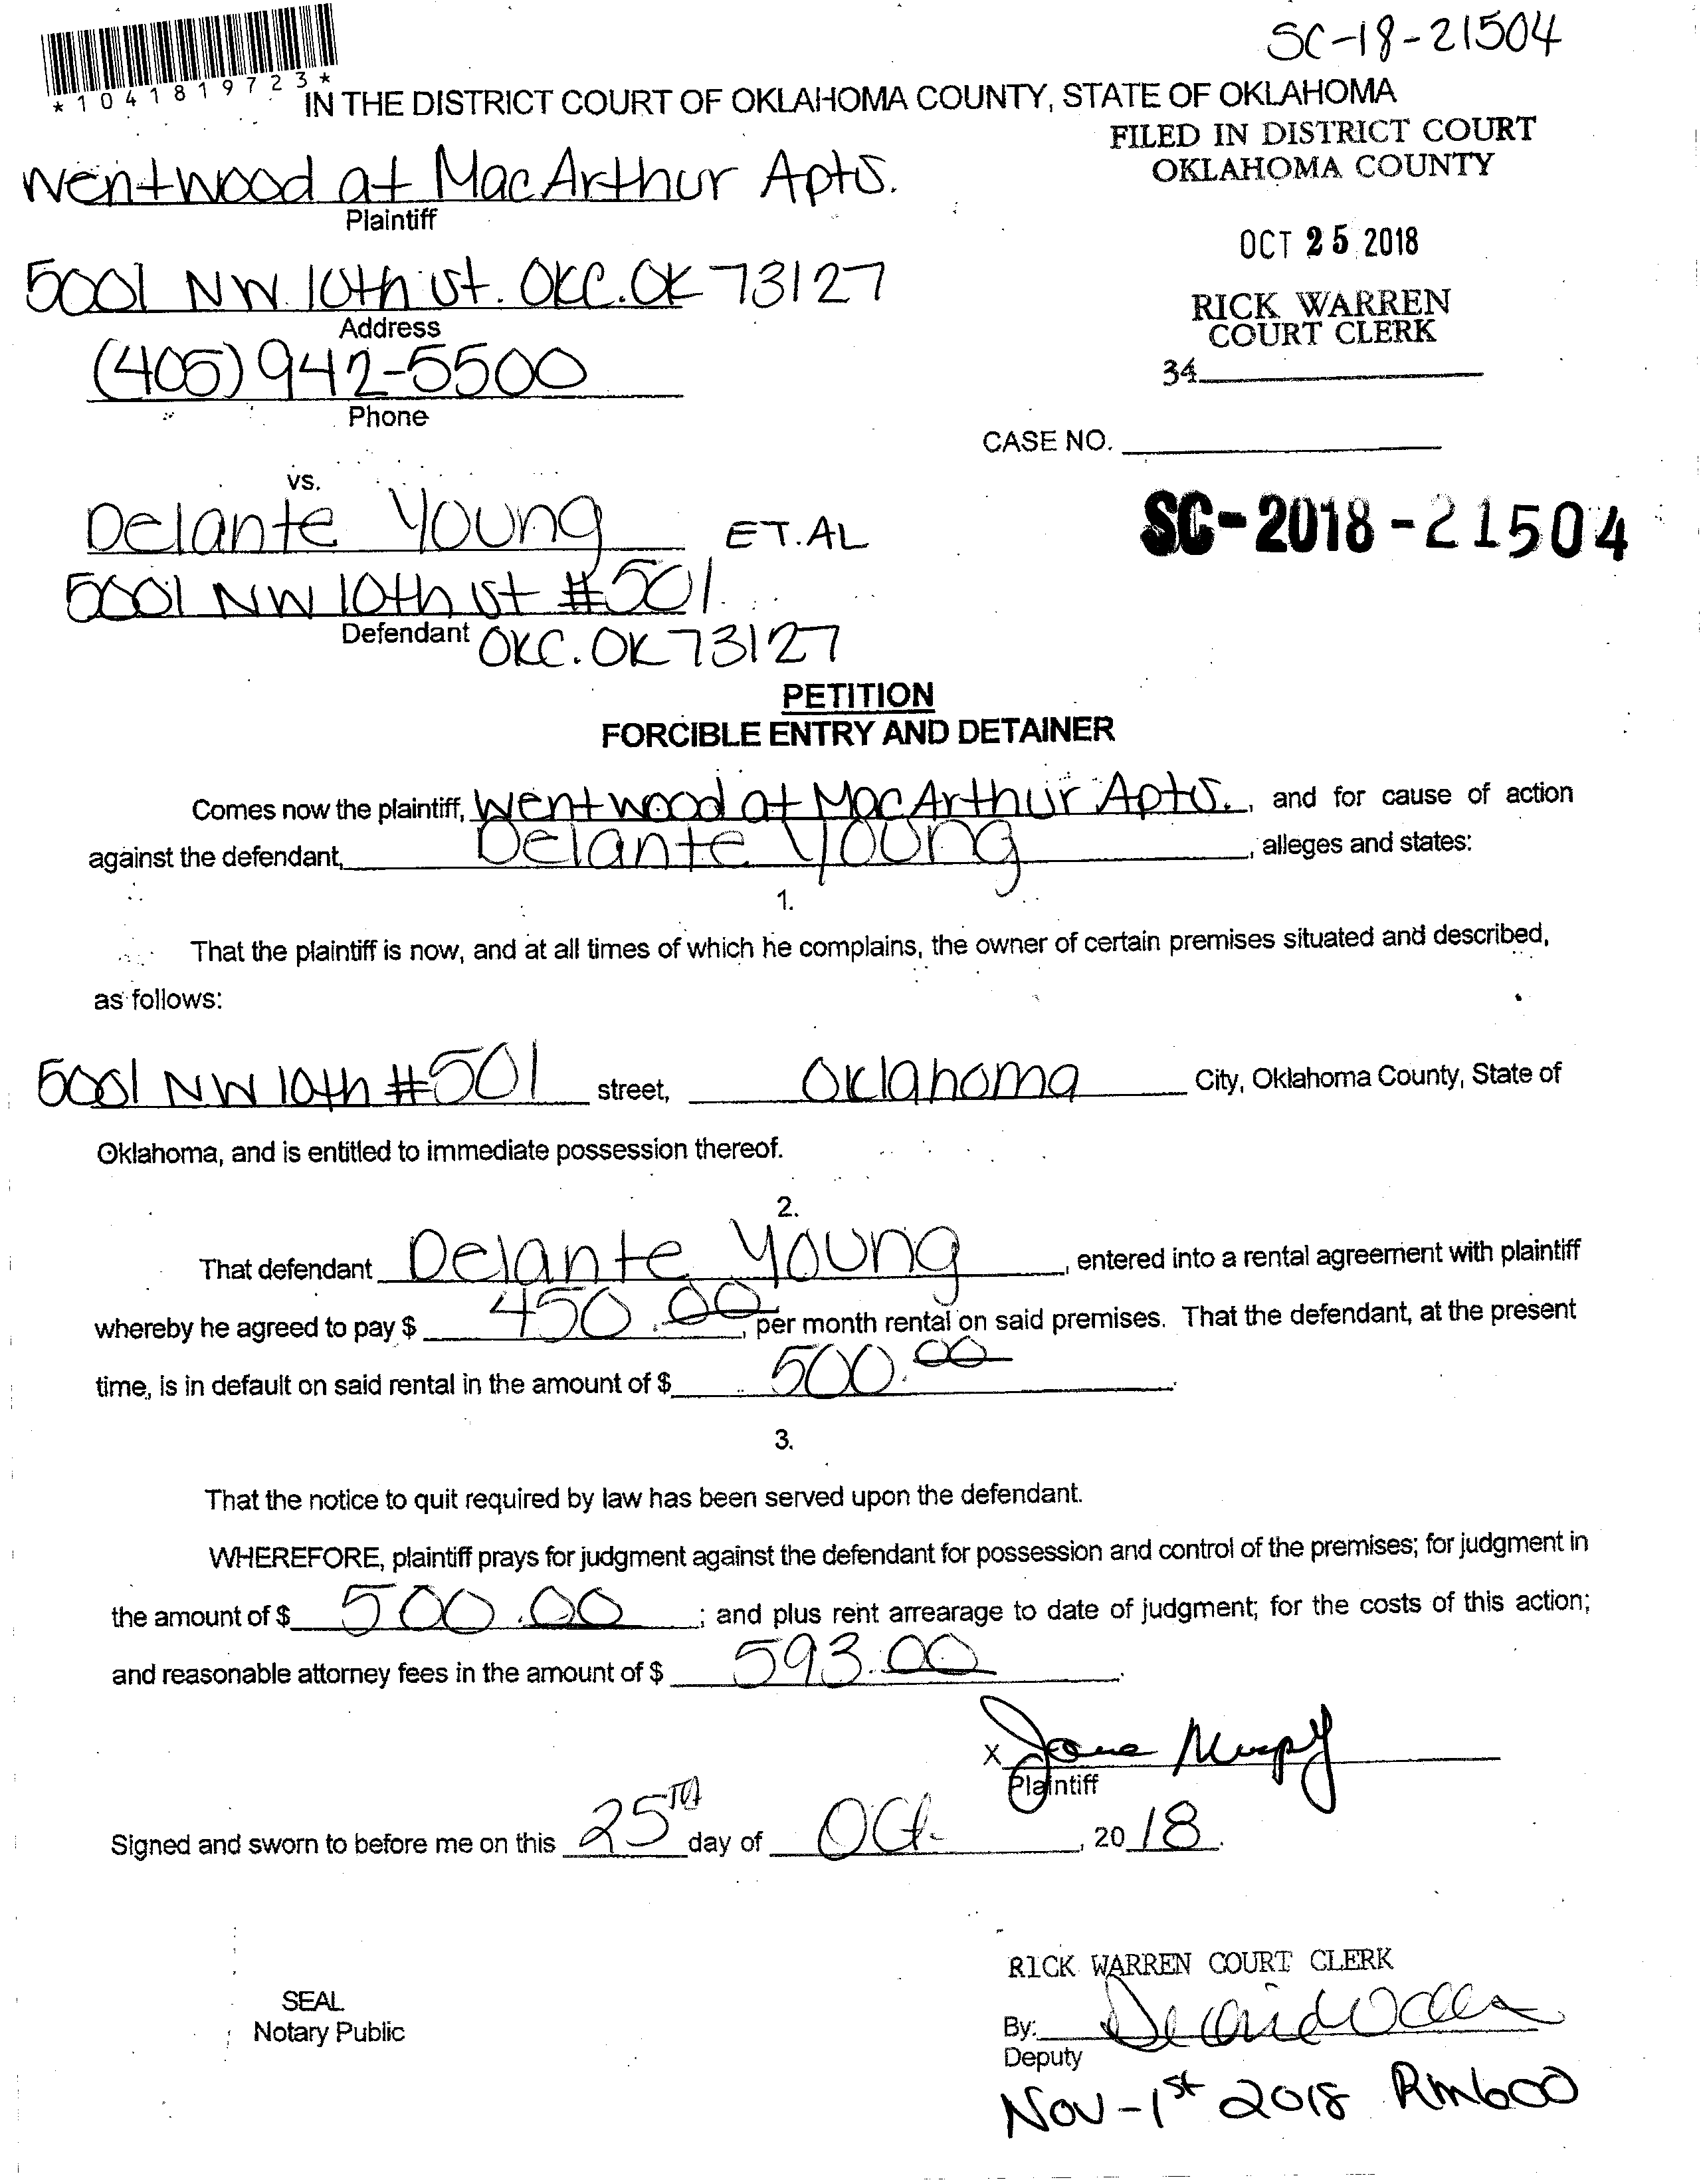 SC-18-21504
*1041819723*
IN THE DISTRICT COURT OF OKLAHOMA COUNTY, STATE OF OKLAHOMA
FILED IN DISTRICT COURT
OKLAHOMA COUNTY
Wentwood at MacArthur Apts.
Plaintiff
OCT 25 2018
5001 NW 10th St. OKC. OK 73127
Address
RICK WARREN
COURT CLERK
(405) 942-5500
Phone
34
CASE NO.
vs.
Delante Young ET.AL
SC-2018-21504
5001 NW 10th St #501
Defendant OKC. OK 73127
PETITION
FORCIBLE ENTRY AND DETAINER
Comes now the plaintiff, Wentwood at MacArthur Apts., and for cause of action
against the defendant, Delante Young, alleges and states:
1.
That the plaintiff is now, and at all times of which he complains, the owner of certain premises situated and described,
as follows:
5001 NW 10th #501 street, Oklahoma City, Oklahoma County, State of
Oklahoma, and is entitled to immediate possession thereof.
2.
That defendant Delante Young, entered into a rental agreement with plaintiff
whereby he agreed to pay $ 450.00, per month rental on said premises. That the defendant, at the present
time, is in default on said rental in the amount of $ 500.00.
3.
That the notice to quit required by law has been served upon the defendant.
WHEREFORE, plaintiff prays for judgment against the defendant for possession and control of the premises; for judgment in
the amount of $ 500.00; and plus rent arrearage to date of judgment; for the costs of this action;
and reasonable attorney fees in the amount of $ 593.00.
X
Plaintiff
Signed and sworn to before me on this 25TH day of Oct., 2018.
RICK WARREN COURT CLERK
SEAL
Notary Public
By:
Deputy
Nov-1st 2018 Rm600